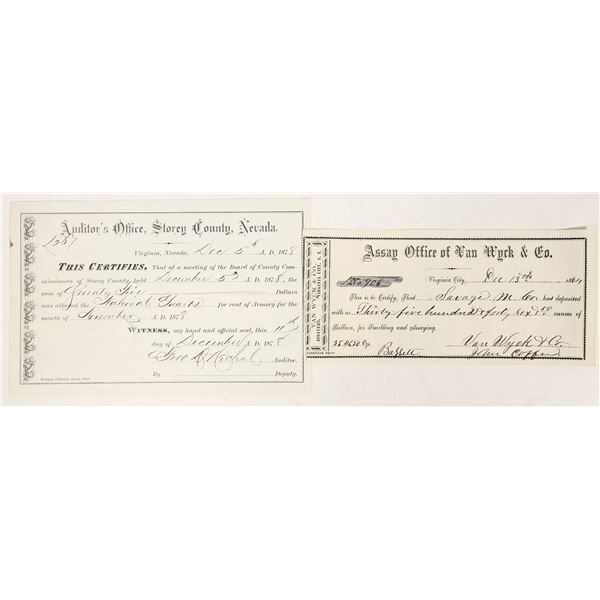 Auditor's Office, Storey County, Nevada.
Virginia, Nevada, Dec 5th A. D. 1878
THIS CERTIFIES, That at a meeting of the Board of County Com-
missioners of Storey County, held December 5th A. D. 1878, the
sum of Twenty Five Dollars
was allowed the National Guards for rent of Armory for the
month of November A. D. 1878
WITNESS, my hand and official seal, this 11th
day of December A. D. 1878
Auditor.
By Deputy.
VAN WYCK & CO.
ASSAYERS
VIRGINIA CITY, N. T.
Assay Office of Van Wyck & Co.
No. 906 Virginia City, Dec 13th 1864
This is to Certify, That Savage M. Co has deposited
with us Thirty five hundred & forty six 50 ounces of
Bullion, for Smelting and Assaying.
3546.50 Oz. Van Wyck & Co.
Bassett John